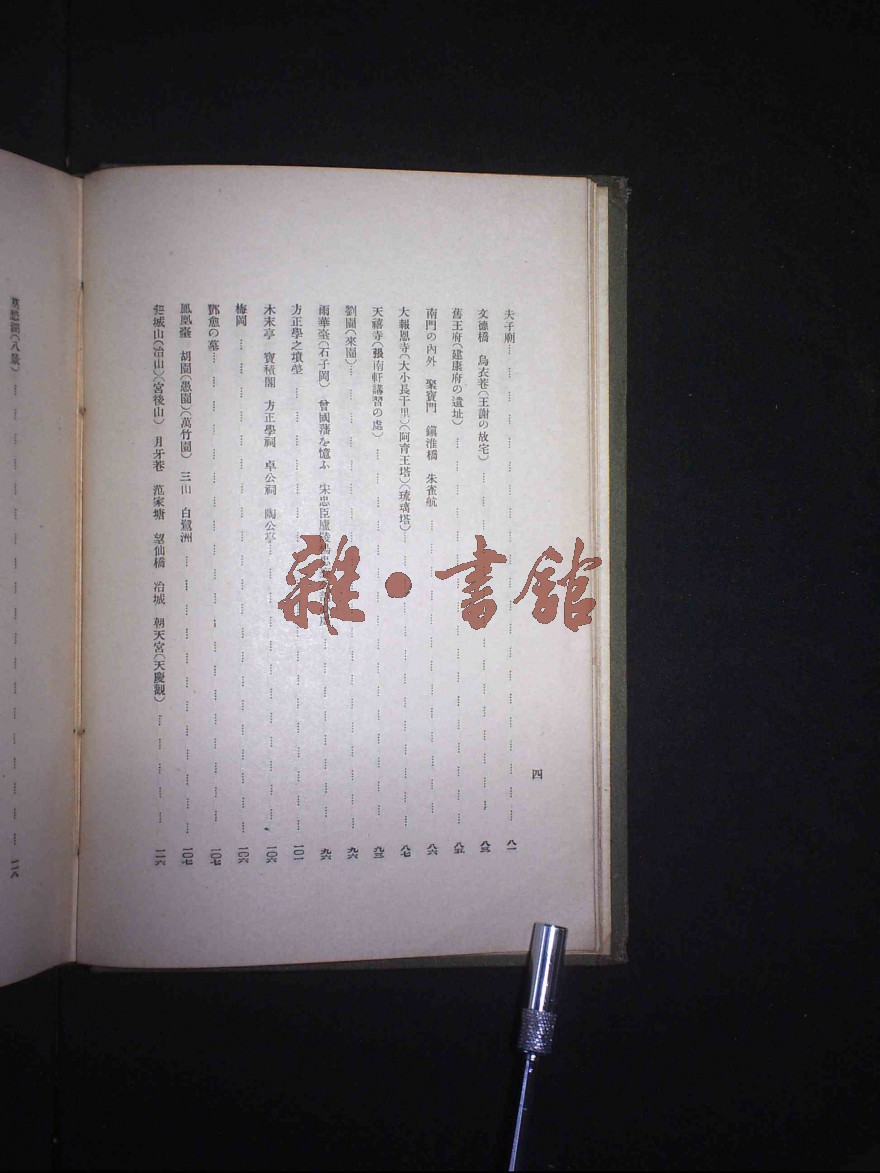 四
夫子廟 八一
文德橋 烏衣巷(王謝の故宅) 八三
舊王府(建康府の遺址) 八五
南門の內外 聚寶門 鎭淮橋 朱雀航 八六
大報恩寺(大小長干里)(阿育王塔)(琉璃塔) 八七
天禧寺(張南軒講習の處) 九三
劉園(來園) 九六
雨華臺(石子岡) 曾國藩を憶ふ 宋忠臣廬陵楊忠 九六
方正學之墳塋 一〇一
木末亭 寶積閣 方正學祠 卓公祠 陶公亭 一〇六
梅岡 一〇六
鄧愈の墓 一〇七
鳳凰臺 胡園(愚園)(萬竹園) 三山 白鷺洲 一〇七
城山(冶山)(宮後山) 月牙巷 范家塘 望仙橋 冶城 朝天宮(天慶觀) 一一六
莫愁湖(八景) 一一八
雜·書館